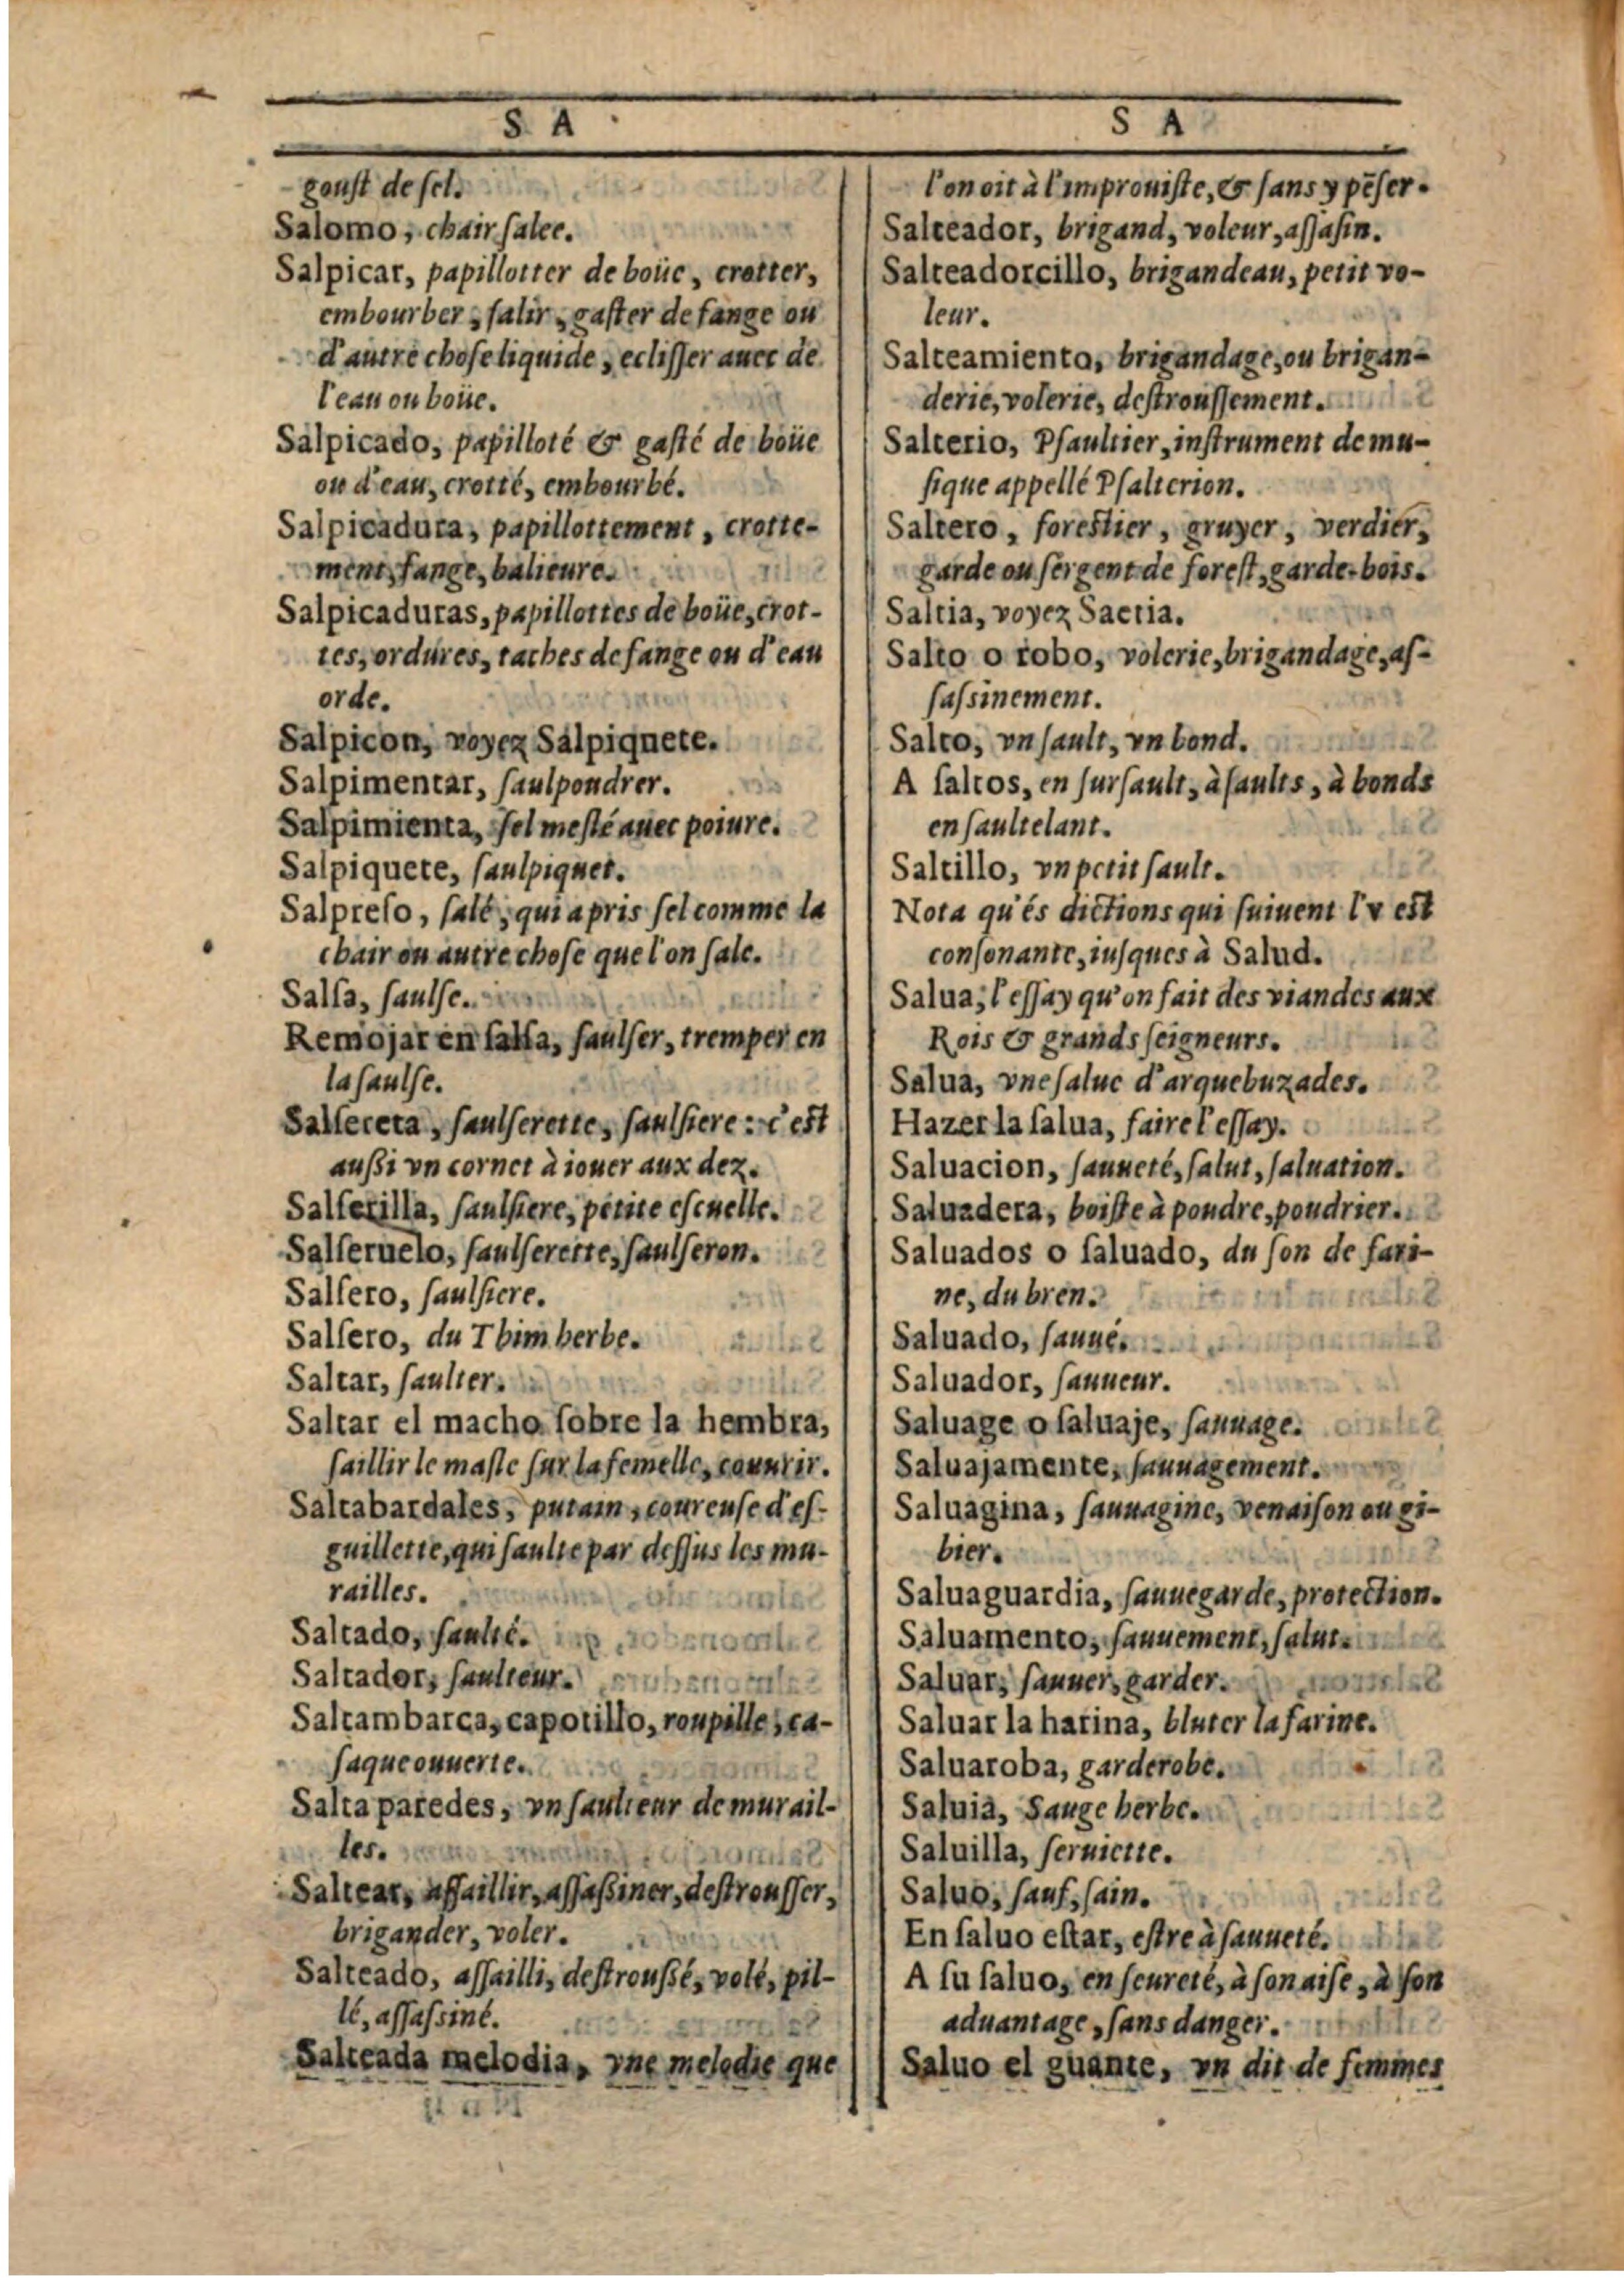 S A
gouſt de ſel.
Salomo, chair ſalee.
Salpicar, papillotter de boüe, crotter,
embourber, ſalir, gaſter de fange ou
d'autre choſe liquide, ecliſſer auec de
l'eau ou boüe.
Salpicado, papilloté & gaſté de boüe
ou d'eau, crotté, embourbé.
Salpicadura, papillottement, crotte-
ment, fange, balieure.
Salpicaduras, papillottes de boüe, crot-
tes, ordures, taches de fange ou d'eau
orde.
Salpicon, voyez Salpiquete.
Salpimentar, ſaulpoudrer.
Salpimienta, ſel meſlé auec poiure.
Salpiquete, ſaulpiquet.
Salpreſo, ſalé, qui a pris ſel comme la
chair ou autre choſe que l'on ſale.
Salſa, ſaulſe.
Remojar en ſalſa, ſaulſer, tremper en
la ſaulſe.
Salſereta, ſaulſerette, ſaulſiere: c'eſt
außi vn cornet à iouer aux dez.
Salſerilla, ſaulſiere, petite eſcuelle.
Salſeruelo, ſaulſerette, ſaulſeron.
Salſero, ſaulſiere.
Salſero, du Thim herbe.
Saltar, ſaulter.
Saltar el macho ſobre la hembra,
ſaillir le maſle ſur la femelle, couurir.
Saltabardales, putain, coureuſe d'eſ-
guillette, qui ſaulte par deſſus les mu-
railles.
Saltado, ſaulté.
Saltador, ſaulteur.
Saltambarca, capotillo, roupille, ca-
ſaque ouuerte.
Salta paredes, vn ſaulteur de murail-
les.
Saltear, aſſaillir, aſſaßiner, deſtrouſſer,
brigander, voler.
Salteado, aſſailli, deſtroußé, volé, pil-
lé, aſſaſsiné.
Salteada melodia, vne melodie que
S A
l'on oit à l'improuiſte, & ſans y pẽſer.
Salteador, brigand, voleur, aſſaſin.
Salteadorcillo, brigandeau, petit vo-
leur.
Salteamiento, brigandage, ou brigan-
derie, volerie, deſtrouſſement.
Salterio, Pſaultier, inſtrument de mu-
ſique appellé Pſalterion.
Saltero, foreſtier, gruyer, verdier,
garde ou ſergent de foreſt, garde-bois.
Saltia, voyez Saetia.
Salto o robo, volerie, brigandage, aſ-
ſaſsinement.
Salto, vn ſault, vn bond.
A ſaltos, en ſurſault, à ſaults, à bonds
en ſaultelant.
Saltillo, vn petit ſault.
Nota qu'és dictions qui ſuiuent l'v eſt
conſonante, iuſques à Salud.
Salua, l'eſſay qu'on fait des viandes aux
Rois & grands ſeigneurs.
Salua, vne ſalue d'arquebuzades.
Hazer la ſalua, faire l'eſſay.
Saluacion, ſauueté, ſalut, ſaluation.
Saluadera, boiſte à poudre, poudrier.
Saluados o ſaluado, du ſon de fari-
ne, du bren.
Saluado, ſauué.
Saluador, ſauueur.
Saluage o ſaluaje, ſauuage.
Saluajamente, ſauuagement.
Saluagina, ſauuagine, venaiſon ou gi-
bier.
Saluaguardia, ſauuegarde, protection.
Saluamento, ſauuement, ſalut.
Saluar, ſauuer, garder.
Saluar la harina, bluter la farine.
Saluaroba, garderobe.
Saluia, Sauge herbe.
Saluilla, ſeruiette.
Saluo, ſauf, ſain.
En ſaluo eſtar, eſtre à ſauueté.
A ſu ſaluo, en ſeureté, à ſon aiſe, à ſon
aduantage, ſans danger.
Saluo el guante, vn dit de femmes